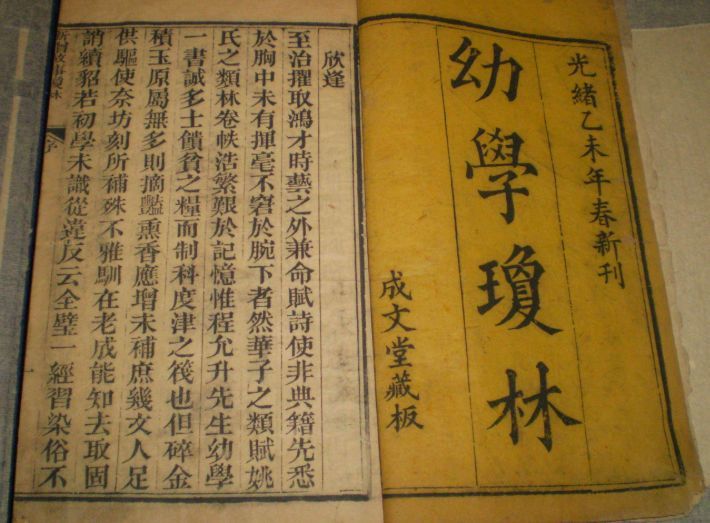 光緒乙未年春新刊
幼學瓊林
成文堂藏板
欣逢
至治擢取鴻才時藝之外兼命賦詩使非典籍先悉
於胸中未有揮毫不窘於腕下者然華子之類賦姚
氏之類林卷帙浩繁艱於記憶惟程允升先生幼學
一書誠多士饋貧之糧而制科度津之筏也但碎金
積玉原屬無多則摘豔熏香應增未補庶幾文人足
供驅使奈坊刻所補殊不雅馴在老成能知去取固
誚續貂若初學未識從違反云全璧一經習染俗不